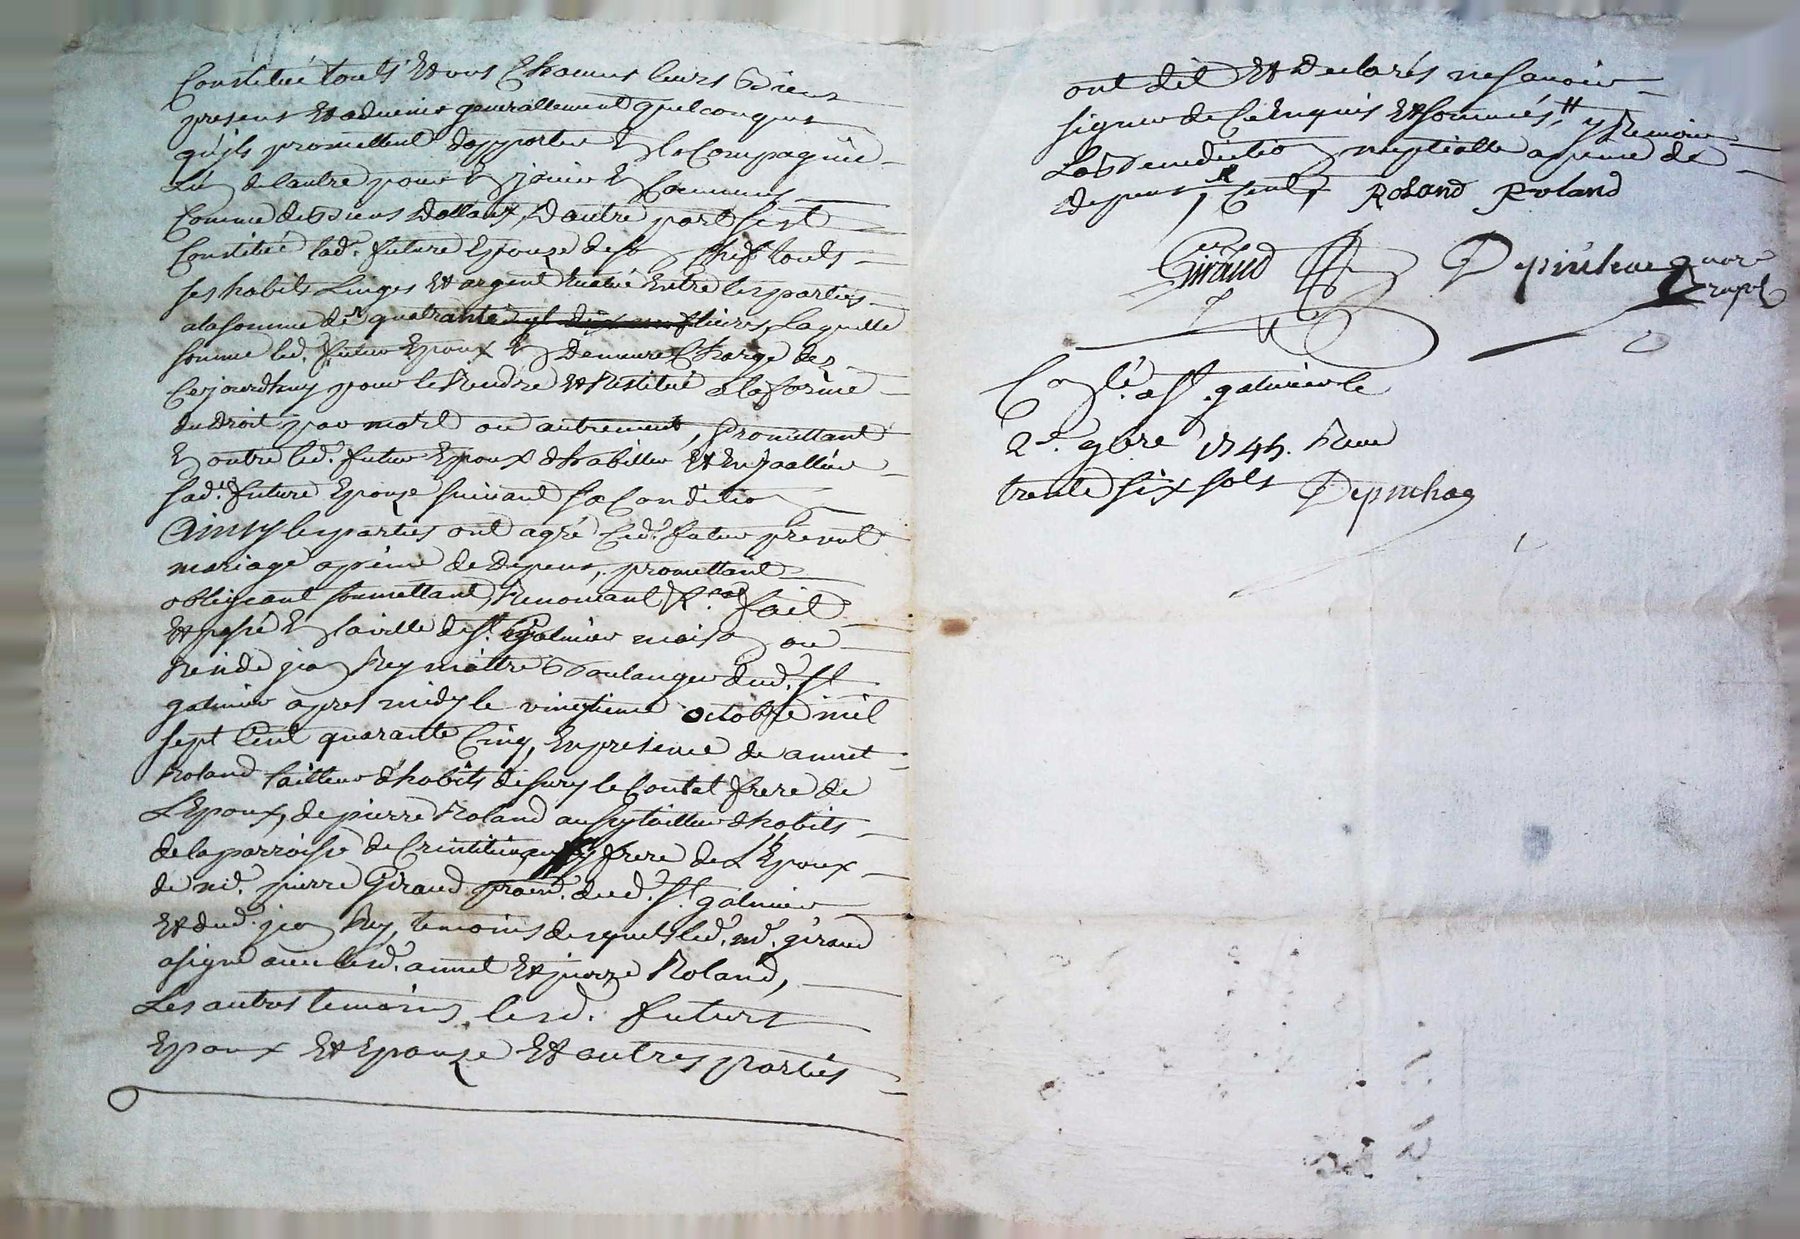 Constitué touts Et uns Chacuns leurs Biens
presens Et aduenir generallement quelconques
qu'ils promettent d'apporter En la Compagnie
L'un de l'autre pour En jouir En Communs
Comme de Biens dottaux, D'autre part s'est
Constitué lad. future Epouze de son Chef touts
ses habits Linges Et argent Entre les parties
a la somme de quatrante liures, Laquelle
somme led. futur Epoux En Demeure Chargé dez
Cejourdhuy pour le Rendre Et Restitué a la forme
du droit, par mort ou autrement, promettant
En outre led. futur Epoux d'habiller Et Enjoaller
lad. future Epouze suiuant sa Condition
Ainsy les parties ont agré Led. futur present
mariage a peine de depens, promettant
obligeant soumettant, Renonçant &.a fait
Et passé En la ville de St. Galmier maison ou
Reside jean Rey maître Boulanger dud. St.
galmier apres midy le vingtieme octobre mil
sept Cent quarante Cinq, En presence de annet
Roland tailleur d'habits de sury le Contat frere de
L'Epoux, de pierre Roland aussy tailleur d'habits
de la parroisse de frere de L'Epoux
de md. pierre Giraud dud. St. galmier
Et dud. jean Rey, temoins desquels led. md. giraud
a signé auec lesd. annet Et pierre Roland,
Les autres temoins, lesd. futurs
Epoux Et Epouze Et autres parties
ont dit Et Declarés ne sauoir
signer de Ce Enquis Et sommés, y Remoir
La Benediction nuptialle a peine de
depens Roland Roland
Giraud
Conlé. a St. galmier le
2e. 9bre 1745. Reçu
trente six sols Depuihac